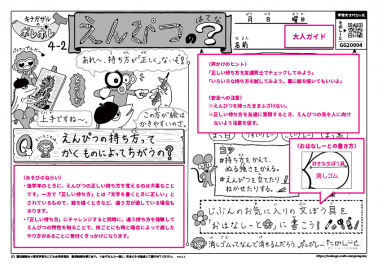 キナガザルの
4-2
えんぴつの?
はてな
月 日 曜日
名前
大人ガイド
GG20004
あれ～、持ち方が正しくないぞ!
上手ですね～。
この方が絵は
かきやすいのさ。
Q
えんぴつの持ち方って
かくものによってちがうの?
〈声かけのヒント〉
「正しい持ち方を友達同士でチェックしてみよう」
「いろいろな持ち方を試してみよう、裏に絵を描いてもいいよ」
〈安全への注意〉
※えんぴつを持ったままふざけない。
※正しい持ち方を友達に質問するとき、えんぴつの先を人に向け
ないよう注意を促す。
〈あそびのねらい〉
・低学年のときに、えんぴつの正しい持ち方を覚えるのは大事なこと
です。一方で「正しい持ち方」とは「文字を書くときに正しい」とされ
ているもので、絵を描くときなど、違う方が適している場合も
あります。
・「正しい持ち方」にチャレンジすると同時に、違う持ち方を体験して
えんぴつの特性を知ることで、何ごとにも時と場合によって適した
やり方があることに気付くきっかけになります。
コツ
#持ち方をかえて、
ぬる強さをかえる。
#えんぴつを立てたり
ねかせたりする。
〈おはなしーとの書き方〉
好きな文ぼう具
消しゴム
じぶんのお気に入りの文ぼう具を
“おはなしーと”に書こう!